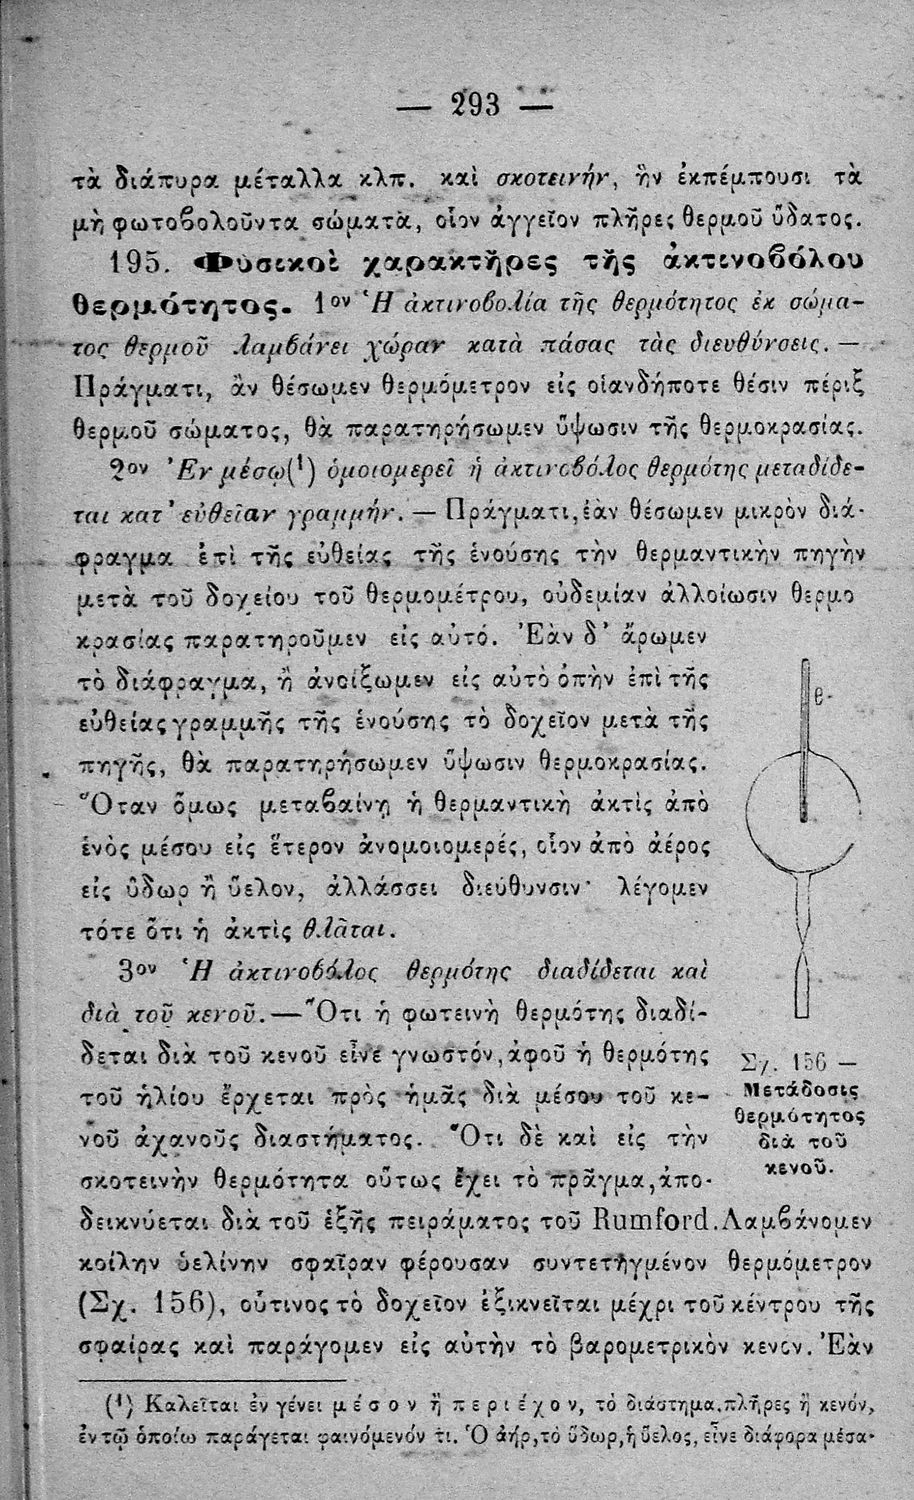 — 293 —
τὰ διάπυρα μέταλλα κλπ. καὶ σκοτεινήν, ἣν ἐκπέμπουσι τὰ
μὴ φωτοβολοῦντα σώματα, οἷον ἀγγεῖον πλῆρες θερμοῦ ὕδατος.
195. Φυσικοὶ χαρακτῆρες τῆς ἀκτινοβόλου
θερμότητος. 1ον Ἡ ἀκτινοβολία τῆς θερμότητος ἐκ σώμα-
τος θερμοῦ λαμβάνει χώραν κατὰ πάσας τὰς διευθύνσεις. —
Πράγματι, ἂν θέσωμεν θερμόμετρον εἰς οἱανδήποτε θέσιν πέριξ
θερμοῦ σώματος, θὰ παρατηρήσωμεν ὕψωσιν τῆς θερμοκρασίας.
2ον Ἐν μέσῳ(¹) ὁμοιομερεῖ ἡ ἀκτινοβόλος θερμότης μεταδίδε-
ται κατ' εὐθεῖαν γραμμήν. — Πράγματι, ἐὰν θέσωμεν μικρὸν διά-
φραγμα ἐπὶ τῆς εὐθείας τῆς ἑνούσης τὴν θερμαντικὴν πηγὴν
μετὰ τοῦ δοχείου τοῦ θερμομέτρου, οὐδεμίαν ἀλλοίωσιν θερμο
κρασίας παρατηροῦμεν εἰς αὐτό. Ἐὰν δ' ἄρωμεν
τὸ διάφραγμα, ἢ ἀνοίξωμεν εἰς αὐτὸ ὀπὴν ἐπὶ τῆς
εὐθείας γραμμῆς τῆς ἑνούσης τὸ δοχεῖον μετὰ τῆς
πηγῆς, θὰ παρατηρήσωμεν ὕψωσιν θερμοκρασίας.
Ὅταν ὅμως μεταβαίνῃ ἡ θερμαντικὴ ἀκτὶς ἀπὸ
ἑνὸς μέσου εἰς ἕτερον ἀνομοιομερές, οἷον ἀπὸ ἀέρος
εἰς ὕδωρ ἢ ὕελον, ἀλλάσσει διεύθυνσιν· λέγομεν
τότε ὅτι ἡ ἀκτὶς θλᾶται.
3ον Ἡ ἀκτινοβόλος θερμότης διαδίδεται καὶ
διὰ τοῦ κενοῦ. — Ὅτι ἡ φωτεινὴ θερμότης διαδί-
δεται διὰ τοῦ κενοῦ εἶνε γνωστόν, ἀφοῦ ἡ θερμότης
τοῦ ἡλίου ἔρχεται πρὸς ἡμᾶς διὰ μέσου τοῦ κε-
νοῦ ἀχανοῦς διαστήματος. Ὅτι δὲ καὶ εἰς τὴν
σκοτεινὴν θερμότητα οὕτως ἔχει τὸ πρᾶγμα, ἀπο-
δεικνύεται διὰ τοῦ ἑξῆς πειράματος τοῦ Rumford. Λαμβάνομεν
κοίλην ὑελίνην σφαῖραν φέρουσαν συντετηγμένον θερμόμετρον
(Σχ. 156), οὗτινος τὸ δοχεῖον ἐξικνεῖται μέχρι τοῦ κέντρου τῆς
σφαίρας καὶ παράγομεν εἰς αὐτὴν τὸ βαρομετρικὸν κενόν. Ἐὰν
θ
Σχ. 156 —
Μετάδοσις
θερμότητος
διὰ τοῦ
κενοῦ.
(¹) Καλεῖται ἐν γένει μέσον ἢ περιέχον, τὸ διάστημα, πλῆρες ἢ κενόν,
ἐν τῷ ὁποίῳ παράγεται φαινόμενόν τι. Ὁ ἀήρ, τὸ ὕδωρ, ἡ ὕελος, εἶνε διάφορα μέσα·